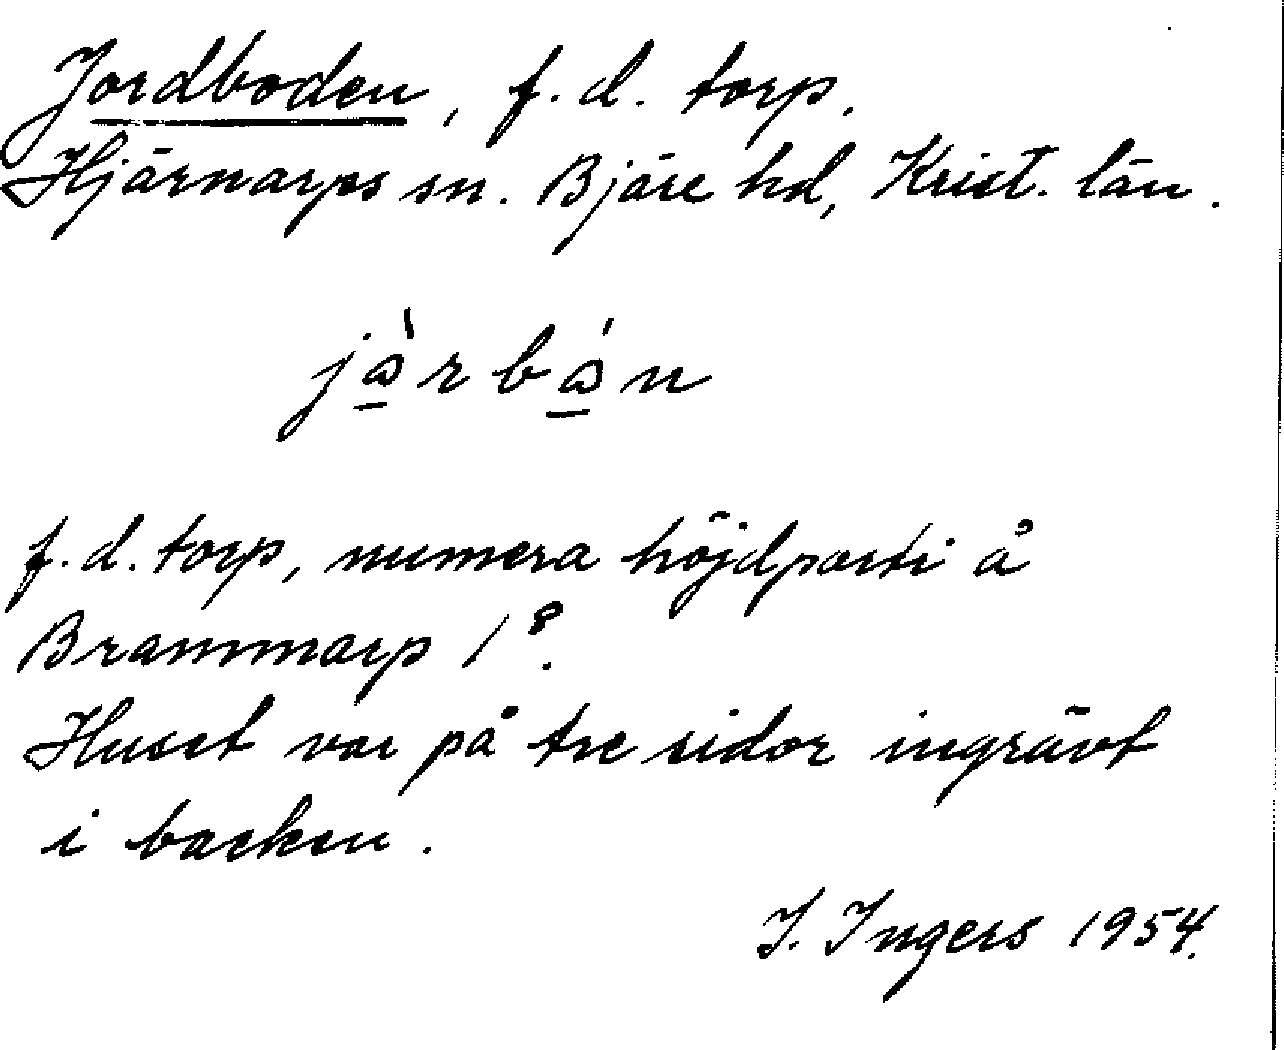 Jordboden, f.d. torp.
Hjärnarps sn. Bjäre hd, Krist. län.
jàrbán
f.d. torp, numera höjdparti å
Brammarp 1⁸.
Huset var på tre sidor ingrävt
i backen.
I. Ingers 1954.